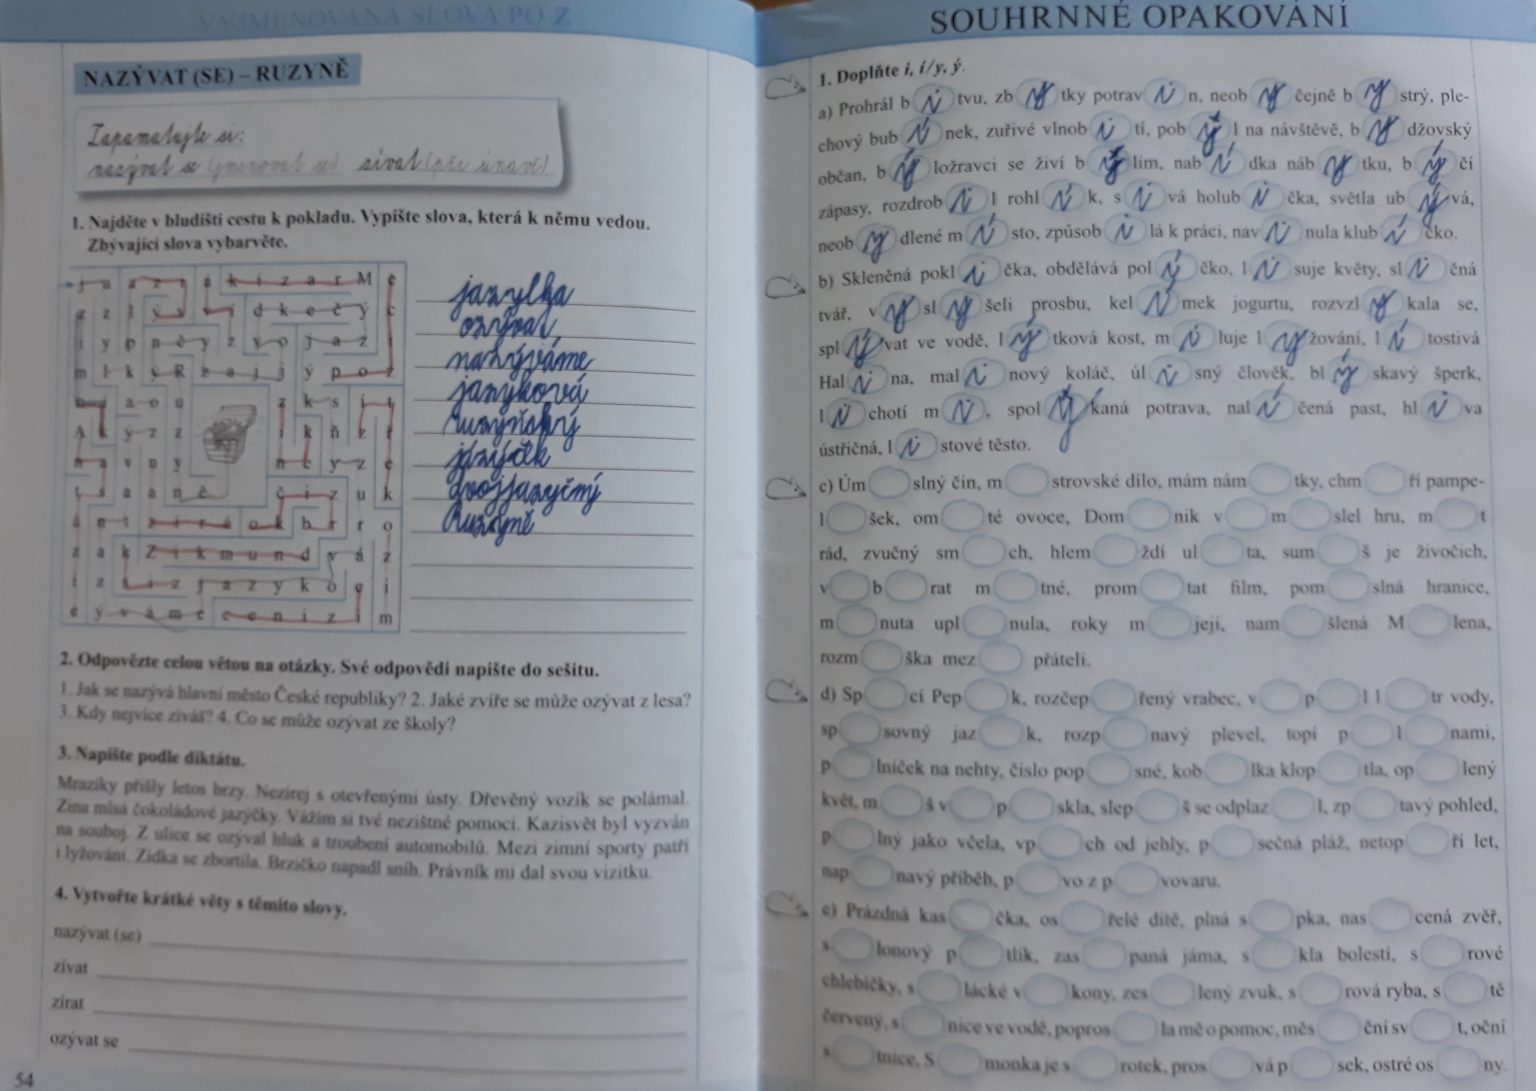 VYJMENOVANÁ SLOVA PO Z
NAZÝVAT (SE) – RUZYNĚ
Zapamatujte si:
nazývat se (jmenovat se) zívat (při únavě)
1. Najděte v bludišti cestu k pokladu. Vypište slova, která k němu vedou.
Zbývající slova vybarvěte.
jazylka
ozývat
nazýváme
jazyková
Ruzyňský
jazýček
dvojjazyčný
Ruzyně
2. Odpovězte celou větou na otázky. Své odpovědi napište do sešitu.
1. Jak se nazývá hlavní město České republiky? 2. Jaké zvíře se může ozývat z lesa?
3. Kdy nejvíce zíváš? 4. Co se může ozývat ze školy?
3. Napište podle diktátu.
Mrazíky přišly letos brzy. Nezírej s otevřenými ústy. Dřevěný vozík se polámal.
Zina mlsá čokoládové jazýčky. Vážím si tvé nezištné pomoci. Kazisvět byl vyzván
na souboj. Z ulice se ozýval hluk a troubení automobilů. Mezi zimní sporty patří
i lyžování. Zídka se zbortila. Brzičko napadl sníh. Právník mi dal svou vizitku.
4. Vytvořte krátké věty s těmito slovy.
nazývat (se)
zívat
zírat
ozývat se
54
SOUHRNNÉ OPAKOVÁNÍ
1. Doplňte i, í/y, ý.
a) Prohrál b i tvu, zb y tky potrav i n, neob y čejně b y strý, ple-
chový bub í nek, zuřivé vlnob i tí, pob ý l na návštěvě, b y džovský
občan, b ý ložravci se živí b ý lím, nab í dka náb y tku, b ý čí
zápasy, rozdrob i l rohl í k, s i vá holub i čka, světla ub ý vá,
neob y dlené m í sto, způsob i lá k práci, nav i nula klub í čko.
b) Skleněná pokl i čka, obdělává pol í čko, l i suje květy, sl i čná
tvář, v y sl y šeli prosbu, kel í mek jogurtu, rozvzl y kala se,
spl ý vat ve vodě, l ý tková kost, m i luje l y žování, l í tostivá
Hal i na, mal i nový koláč, úl i sný člověk, bl ý skavý šperk,
l i choti m i , spol y kaná potrava, nal í čená past, hl i va
ústřičná, l i stové těsto.
c) Úm slný čin, m strovské dílo, mám nám tky, chm ří pampe-
l šek, om té ovoce, Dom nik v m slel hru, m t
rád, zvučný sm ch, hlem ždí ul ta, sum š je živočich,
v b rat m tné, prom tat film, pom slná hranice,
m nuta upl nula, roky m její, nam šlená M lena,
rozm ška mez přáteli.
d) Sp cí Pep k, rozčep řený vrabec, v p l l tr vody,
sp sovný jaz k, rozp navý plevel, topí p l nami,
p lníček na nehty, číslo pop sné, kob lka klop tla, op lený
květ, m š v p skla, slep š se odplaz l, zp tavý pohled,
p lný jako včela, vp ch od jehly, p sečná pláž, netop ří let,
nap navý příběh, p vo z p vovaru.
e) Prázdná kas čka, os řelé dítě, plná s pka, nas cená zvěř,
s lonový p tlík, zas paná jáma, s kla bolestí, s rové
chlebíčky, s lácké v kony, zes lený zvuk, s rová ryba, s tě
červený, s nice ve vodě, popros la mě o pomoc, měs ční sv t, oční
s tnice, S monka je s rotek, pros vá p sek, ostré os ny.